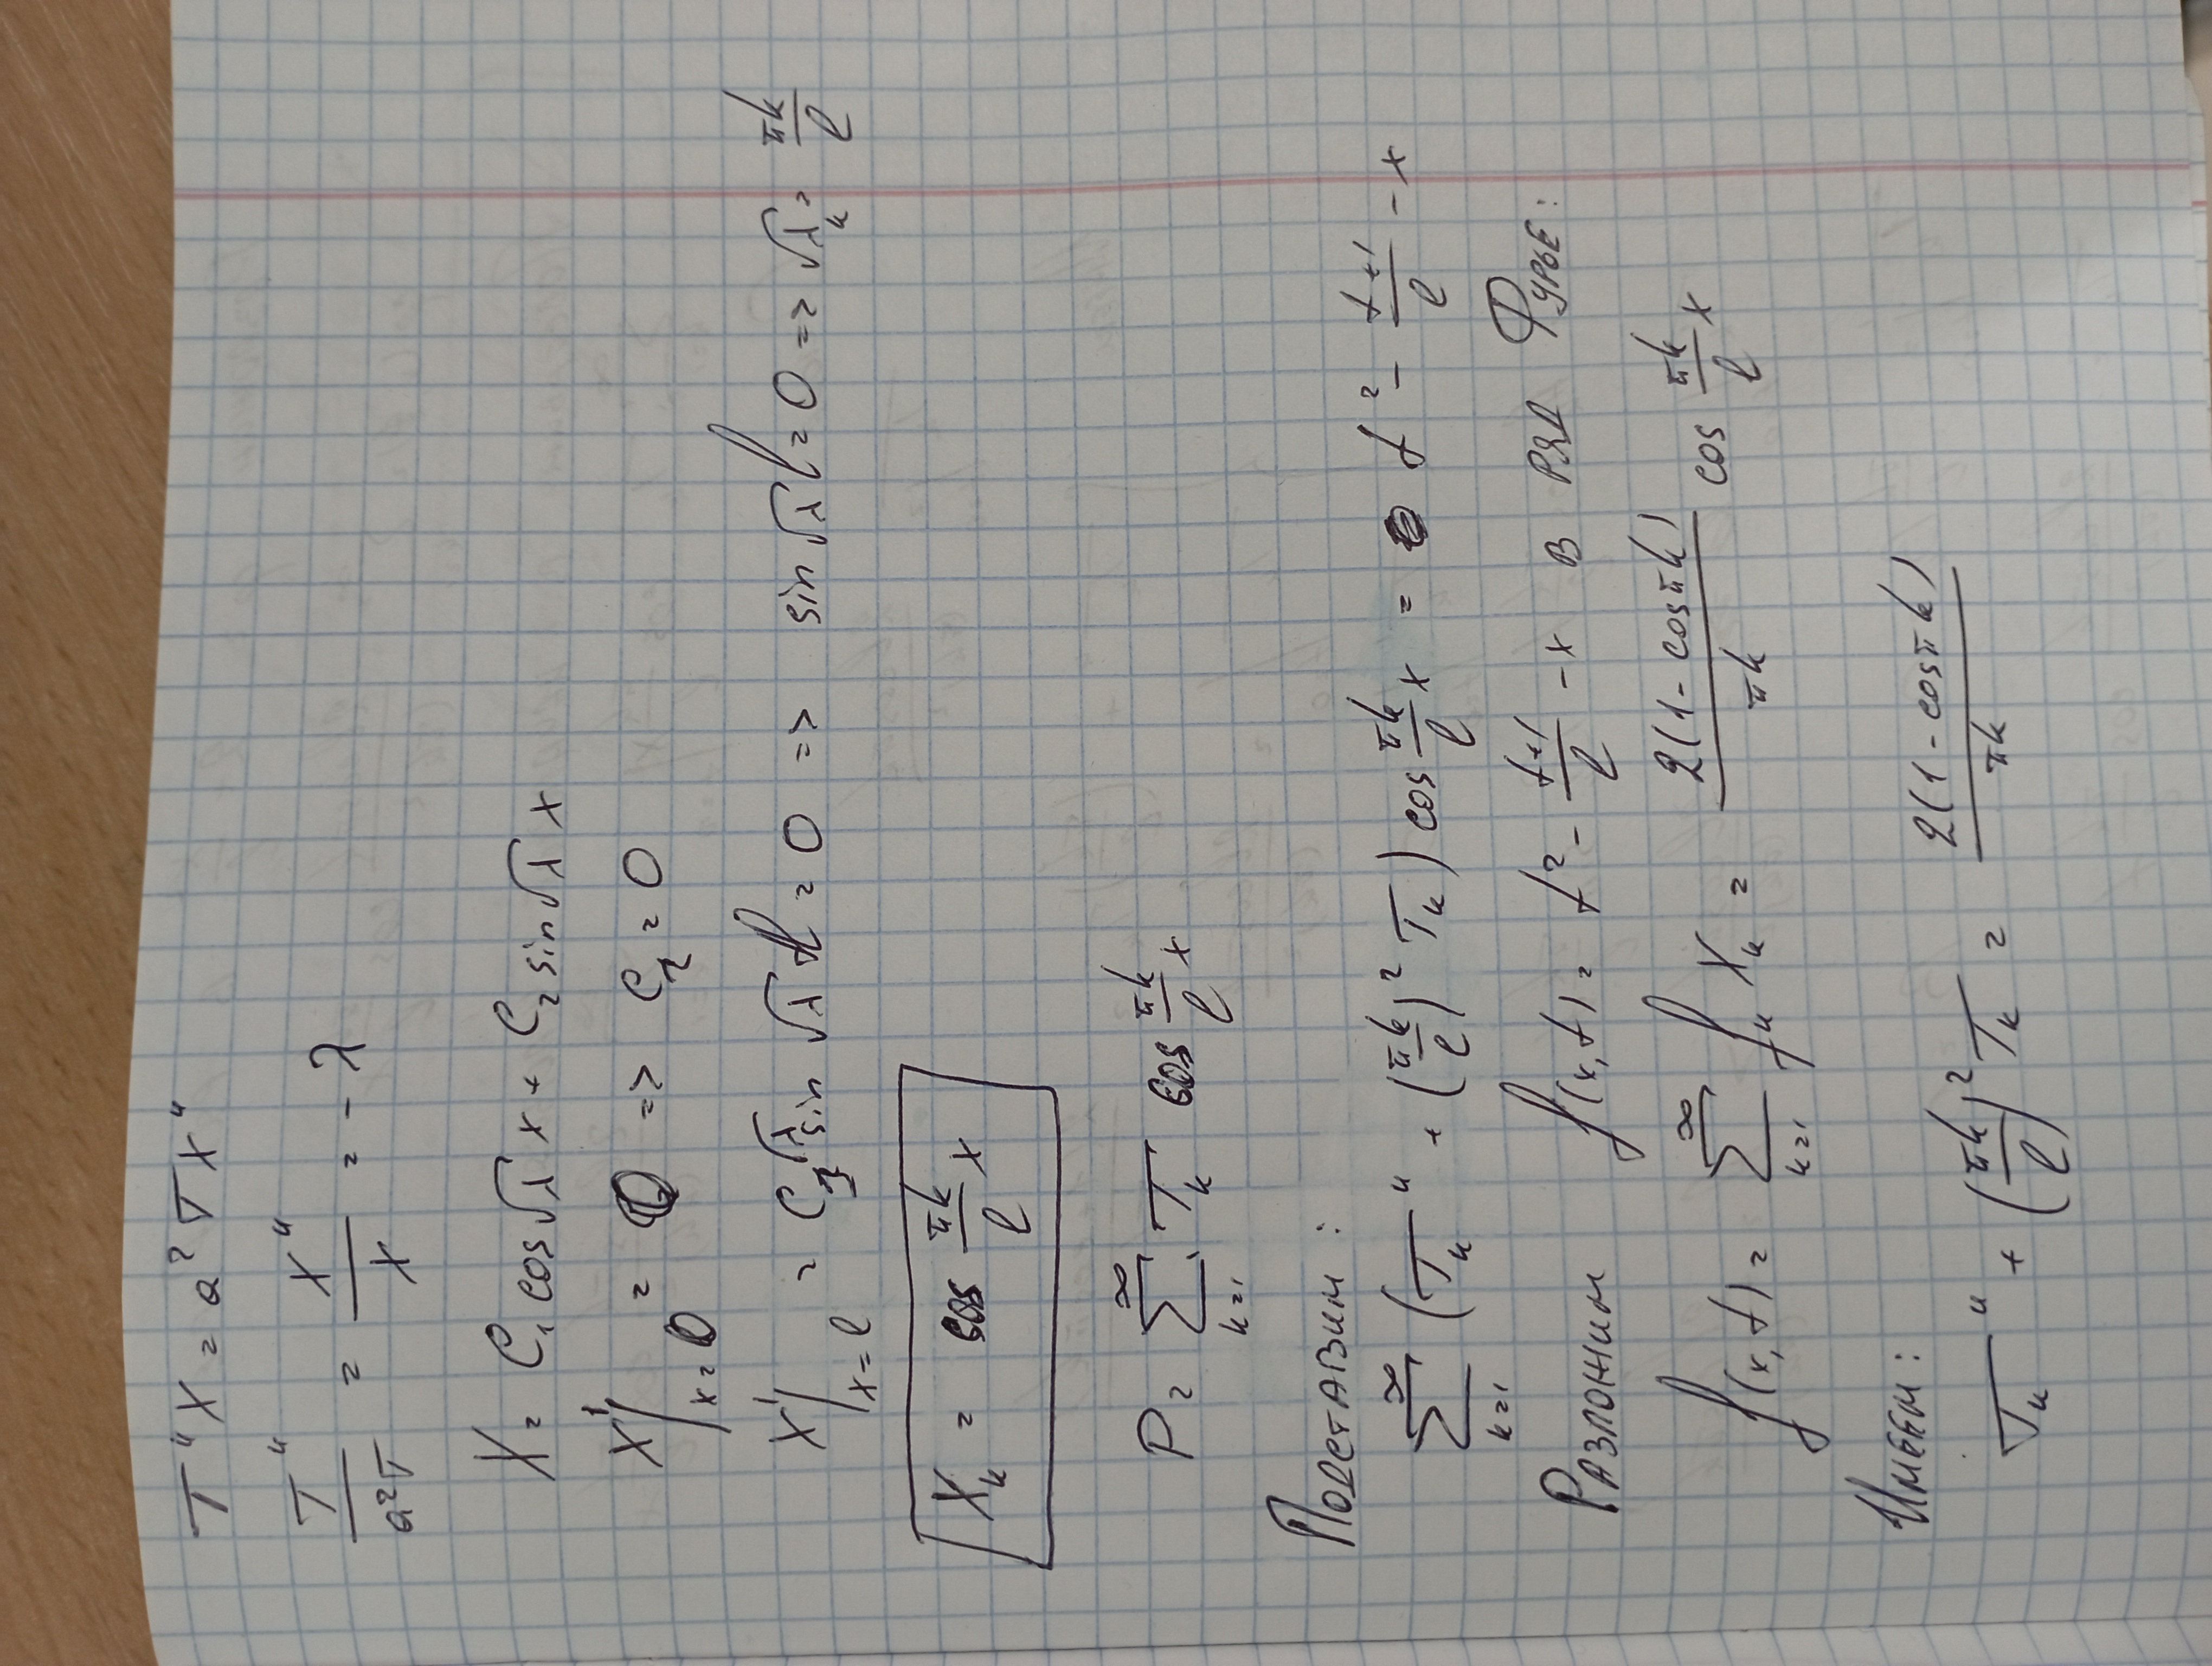 T''X = a²TX''
T''/(a²T) = X''/X = -λ
X = C₁ cos√λ x + C₂ sin√λ x
X'|ₓ₌₀ = 0 => C₂ = 0
X'|ₓ₌ₗ = C₁√λ sin √λ l = 0 => sin√λ l = 0 => √λₖ = πk/l
Xₖ = cos πk/l x
P = ∑ₖ₌₁^∞ Tₖ cos πk/l x
Подставим:
∑ₖ₌₁^∞ (Tₖ'' + (πk/l)² Tₖ) cos πk/l x = t² - (t+1)/l - x
Разложим f(x,t) = t² - (t+1)/l - x в ряд Фурье:
f(x,t) = ∑ₖ₌₁^∞ fₖ Xₖ = 2(1 - cosπk)/(πk) cos πk/l x
Имеем:
Tₖ'' + (πk/l)² Tₖ = 2(1 - cosπk)/(πk)